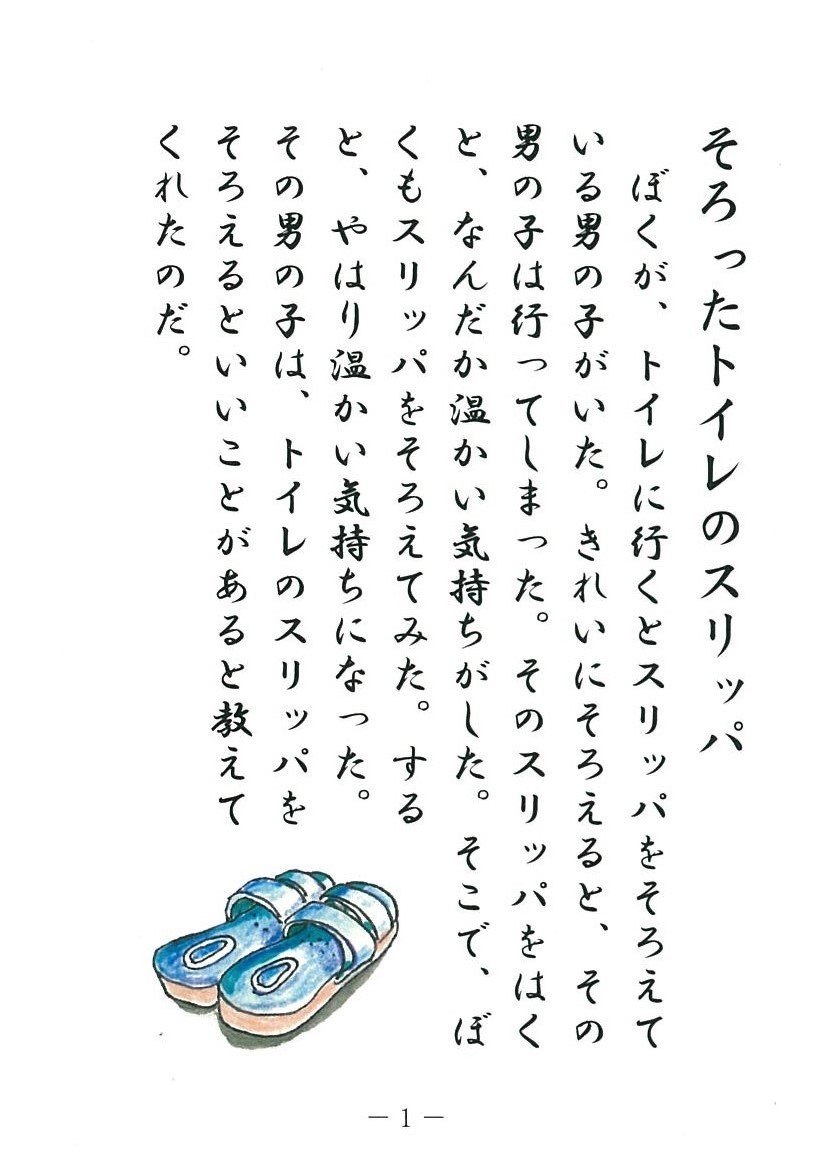 そろったトイレのスリッパ
ぼくが、トイレに行くとスリッパをそろえて
いる男の子がいた。きれいにそろえると、その
男の子は行ってしまった。そのスリッパをはく
と、なんだか温かい気持ちがした。そこで、ぼ
くもスリッパをそろえてみた。する
と、やはり温かい気持ちになった。
その男の子は、トイレのスリッパを
そろえるといいことがあると教えて
くれたのだ。
― 1 ―